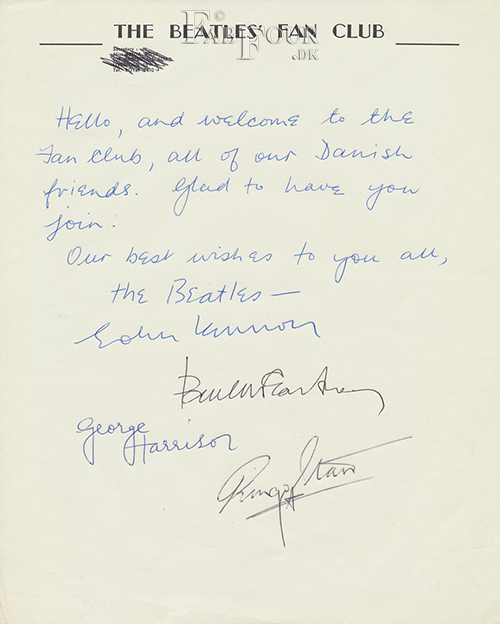 THE BEATLES' FAN CLUB
FAB FOUR
©
.DK
Hello, and welcome to the
Fan Club, all of our Danish
friends. Glad to have you
join.
Our best wishes to you all,
the Beatles —
John Lennon
Paul McCartney
George
Harrison
Ringo Starr